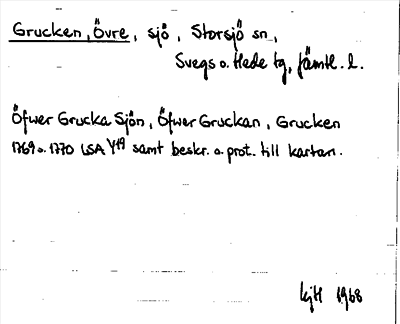 Grucken, Övre, sjö, Storsjö sn,
Svegs o. Hede tg, Jämtl. l.
Öfwer Grucka Sjön, Öfwer Gruckan, Grucken
1769 o. 1770 LSA Y19 samt beskr. o. prot. till kartan.
1968